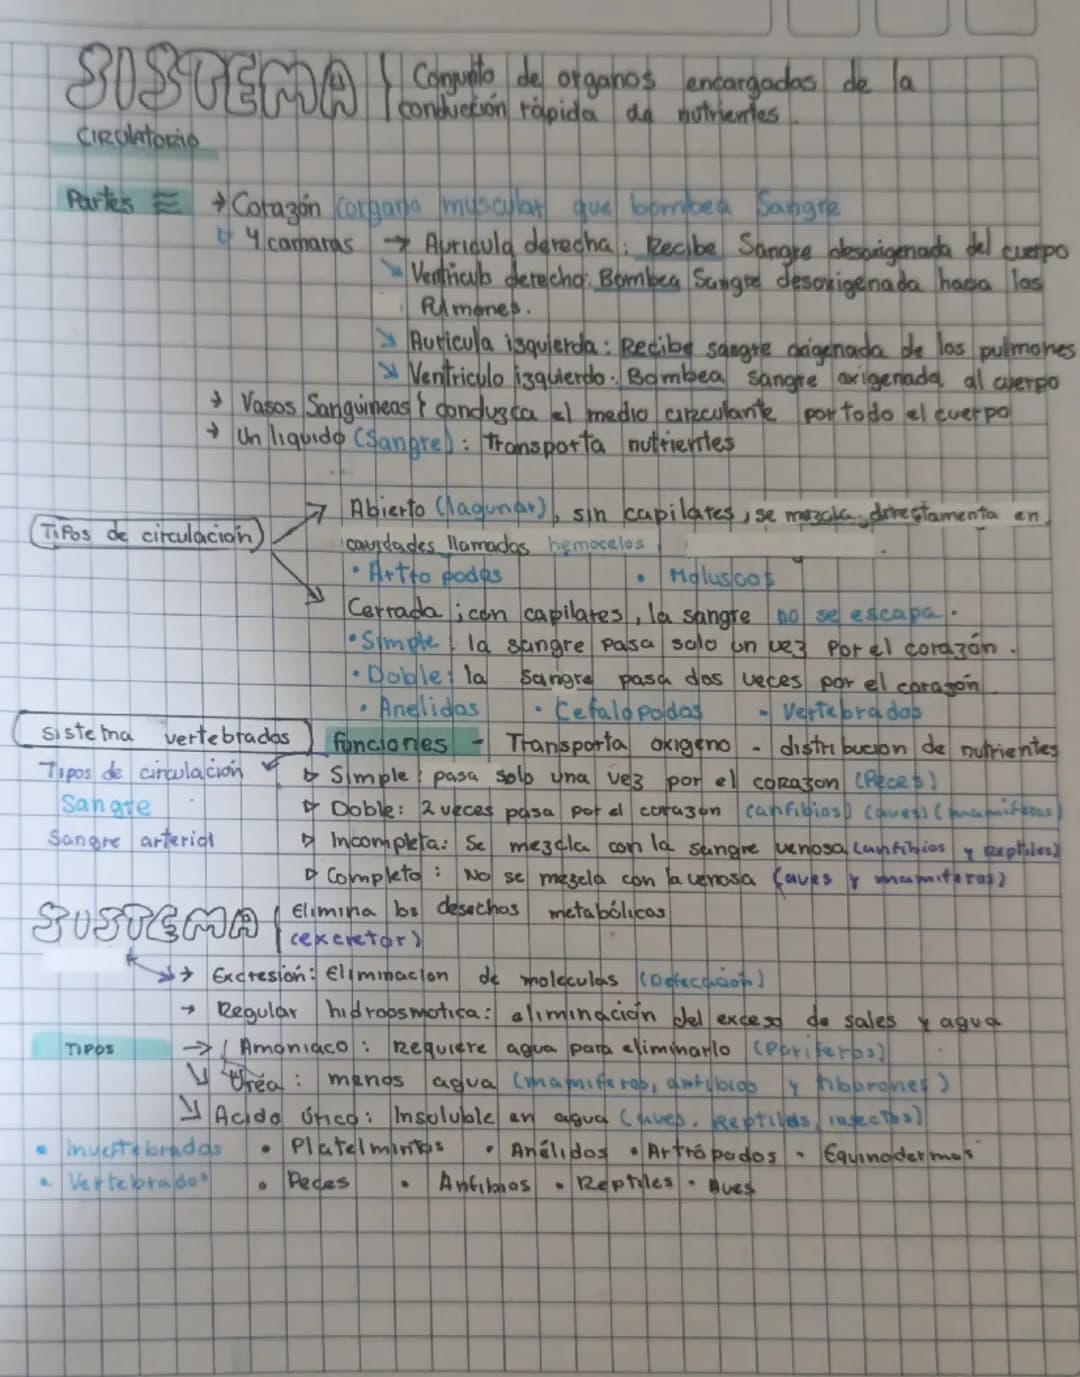 SISTEMA
Conjunto de organos encargadas de la
conducción rápida de nutrientes.
CIRCulatorio
Partes → Corazón (organo muscular que bombea Sangre
4 camaras → Auricula derecha: Recibe Sangre desoxigenada del cuerpo
Ventriculo derecho: Bombea Sangre desoxigenada hacia los
Pulmones.
Auricula isquierda: Recibe sangre oxigenada de los pulmones
Ventriculo izquierdo: Bombea sangre oxigenada al cuerpo
→ Vasos Sanguineas: conduzca el medio circulante por todo el cuerpo
→ Un liquido (Sangre): transporta nutrientes
Tipos de circulación
Abierto (lagunar), sin capilares, se mezcla directamenta en
cavidades llamadas hemocelos
• Artropodos • Moluscos
Cerrada; con capilares, la sangre no se escapa.
• Simple: la sangre pasa solo un vez por el corazón.
• Doble: la sangre pasa dos veces por el corazon
• Anelidas • Cefalopodas - Vertebrados
Sistema vertebrados
funciones - Transporta oxigeno - distribucion de nutrientes
Tipos de circulación
Simple: pasa solo una vez por el corazon (Peces)
Sangre
Doble: 2 veces pasa por el corazon (anfibios) (aves) (mamiferos)
Sangre arterial
Incompleta: Se mezcla con la sangre venosa (anfibios y Reptiles)
Completo: No se mezcla con la venosa (aves y mamiferos)
SISTEMA
Elimina los desechos metabólicos
(excretor)
→ Excresión: Eliminacion de moleculas (Defecación)
→ Regular hidroosmotica: eliminación del exceso de sales y agua
TIPOS
→ Amoniaco: Requiere agua para eliminarlo (Poriferos)
Uréa: menos agua (mamiferos, anfibios y tiburones)
Acido úrico: Insoluble en agua (aves, Reptiles, insectos)
• Invertebrados • Platelmintos • Anélidos • Artrópodos - Equinodermos
• Vertebrados • Peces • Anfibios • Reptiles - Aves